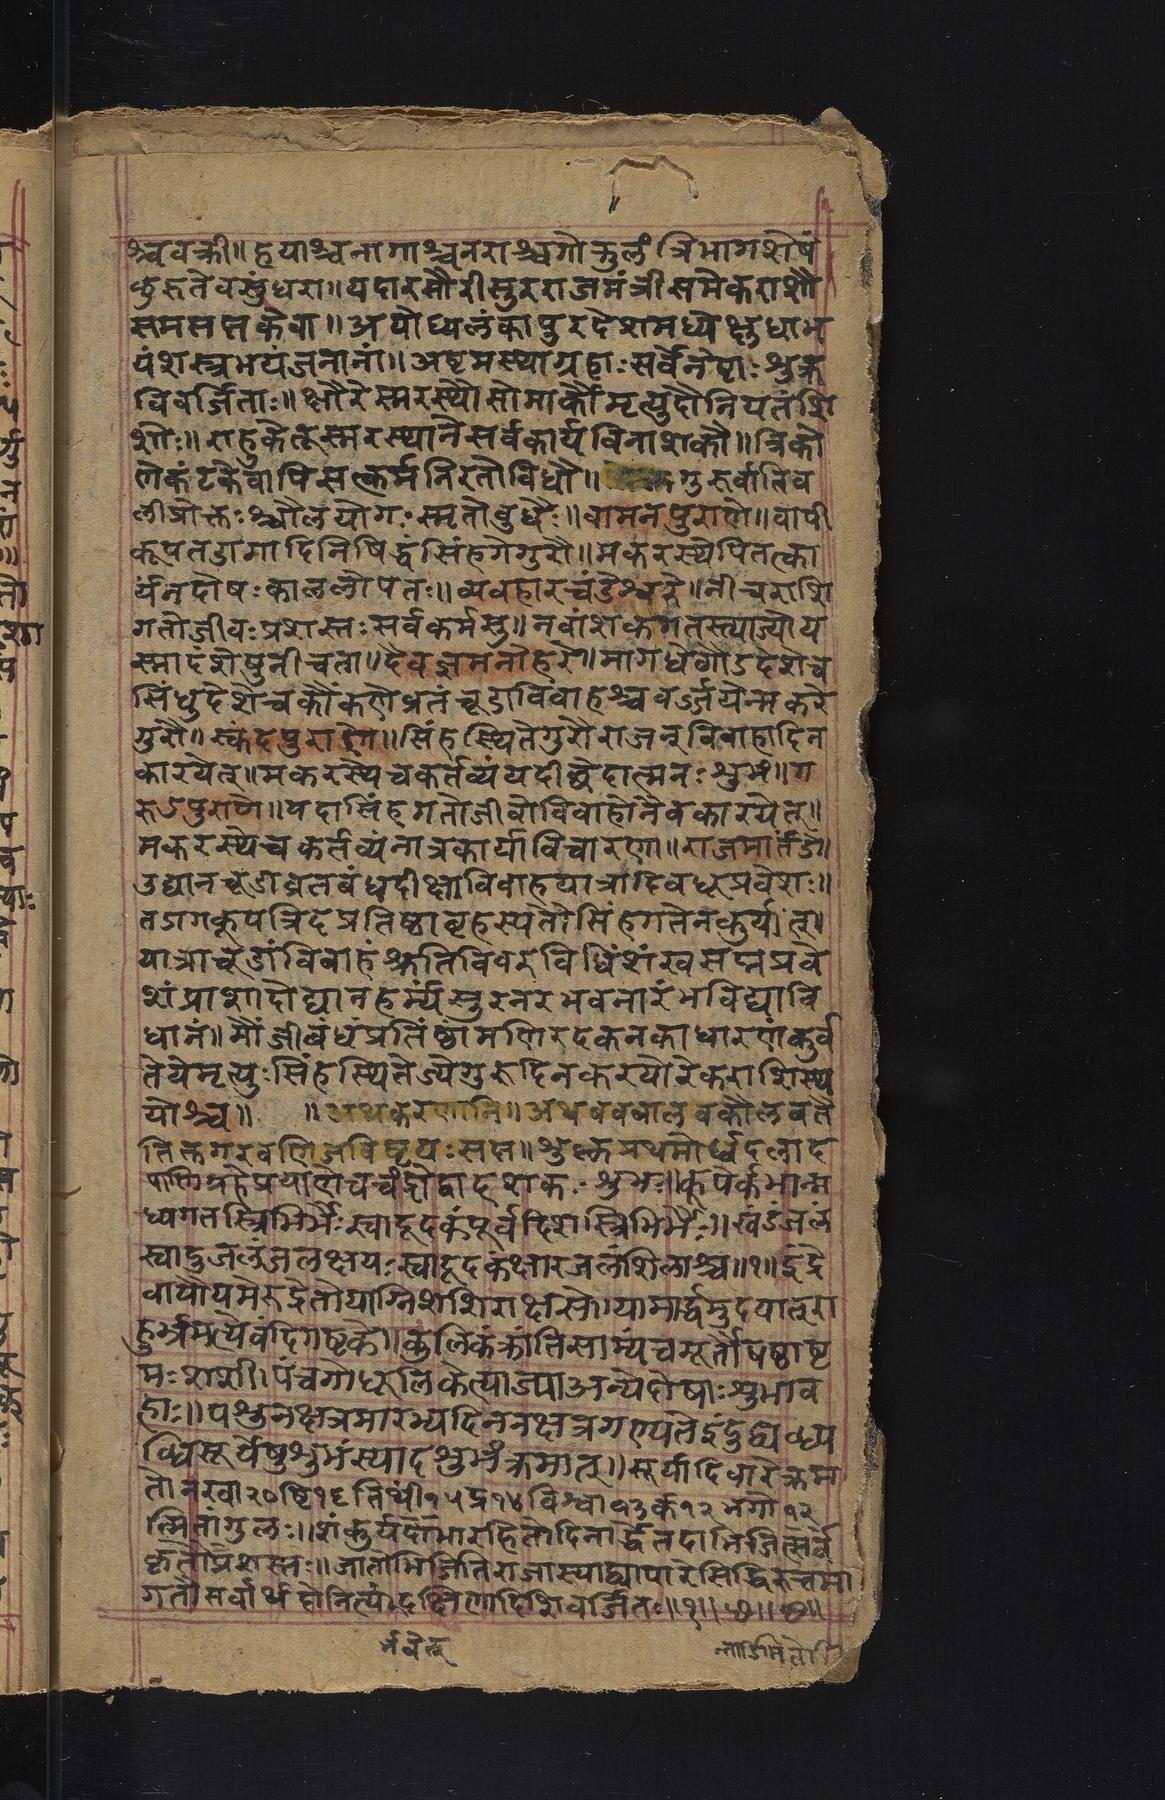 श्ववक्री॥ हयाश्वनागाश्वनराश्वगोत्तुलं त्रिभागशेषं
कुरुतेवसुंधरा॥ यदारसौरीसुरराजमंत्री समेकराशौ
समसप्तकेवा॥ अयोध्यलंकापुरदेशमध्येक्षुधाभ
यंशस्त्रभयंजनानां॥ अष्टमस्थाग्रहाःसर्वेनेष्टाःशुक्र
विवर्जिताः॥ क्षौरेस्मरस्थौसोमार्कौमृत्युदौनियतंशि
शोः॥ राहुकेतूस्मरस्थानेसर्वकार्यविनाशकौ॥ त्रिको
णेकंटकेवापिसत्कर्मनिरतोविधौ॥ गुरुर्वातिव
लीप्रोक्तःश्चौलयोगःस्मृतोबुधैः॥ वामनपुराणे॥ वापी
कूपतडागादिनिषिद्धंसिंहगेगुरौ॥ मकरस्थेपितत्का
र्यंनदोषःकाललोपतः॥ व्यवहारचंडेश्वरे॥ नीचराशि
गतोजीवःप्रशस्तःसर्वकर्मसु॥ नवांशकगतस्त्याज्योय
स्मादंशेषुनीचता॥ दैवज्ञमनोहरे॥ मागधेगौडदेशेच
सिंधुदेशेचकौकणेव्रतंचूडाविवाहश्चवर्ज्जयेन्मकरे
गुरौ॥ स्कंदपुराणे॥ सिंहस्थितेगुरौराजन्विवाहादिन
कारयेत्॥ मकरस्थेचकर्तव्यंयदीच्छेदात्मनःशुभं॥ ग
रुडपुराणे॥ यदासिंहगतोजीवोविवाहोनैवकारयेत्॥
मकरस्थेचकर्तव्यंनात्रकार्याविचारणा॥ राजमार्तंडे॥
उद्यानचूडाव्रतबंधदीक्षाविवाहयात्रादिवधूप्रवेशः॥
तडागकूपत्रिदप्रतिष्ठाबृहस्पतौसिंहगतेनकुर्यात्॥
यात्राचूडांविवाहंश्रुतिविवरविधिंशंखसप्नप्रवे
शंप्राशादोद्यानहर्म्यंसुरनरभवनारंभविद्यावि
धानं॥ मौंजीबंधंप्रतिष्ठांमणिरदकनकाधारणंकुर्व
तेयेमृत्युःसिंहस्थितेज्येगुरुदिनकरयोरेकराशिस्थ
योश्च॥ ॥ अथकरणानि॥ अथबवबालवकौलवतै
तिलगरवणिजविष्टयःसप्त॥ शुक्लप्रथमोर्ध्वदलाद
पाणिग्रहेप्रयाणेचचंद्रोद्वादशकःशुभः॥ कूपेर्कभान्म
ध्यगतस्त्रिभिर्भैःस्वादूदकंपूर्वदिशस्त्रिभिर्भैः॥ खंडंजलं
स्वादुजलंजलक्षयःस्वादूदकंक्षारजलंशिलाश्च॥१॥ इंद्रे
वायौयमेरुद्रेतोयाग्निशशिराक्षसे॥ यामार्द्धमुदयात्रा
हुर्भ्रमत्येवंदिगष्टके॥ कुलिकंक्रांतिसाम्यंचमूर्तौषष्ठाष्ट
मःशशी॥ पंचगोधूलिकेत्याज्याअन्येदोषाःशुभाव
हाः॥ पशुनक्षत्रमारभ्यदिननक्षत्रगण्यते
सूर्येषुशुभंस्यादशुभंक्रमात्॥ सूर्यादिवारेक्रम
तोनखा२०ष्टि१६तिथीं१५द्र१४विश्वा१३र्क१२भगो१२
त्मितांगुलः॥ शंकुर्यदाभारहितोदिनार्द्धेतदाभिजित्सर्व
कृतौप्रशस्तः॥ जातोभिजितिराजास्याद्व्यापारेसिद्धिरुत्तमा
गतौसर्वार्थदोनित्यंदक्षिणादिशिवर्जितः॥१॥ छ॥ छ॥
र्भवेत्